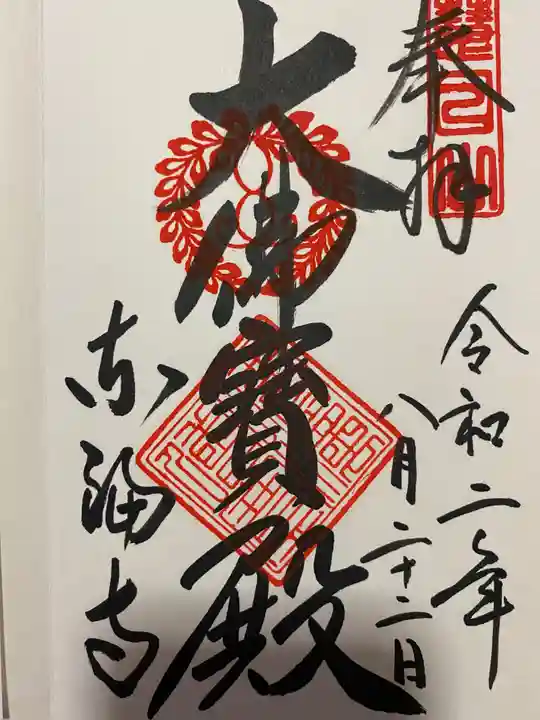 奉拝
令和二年
八月二十二日
大佛寶殿
东福寺